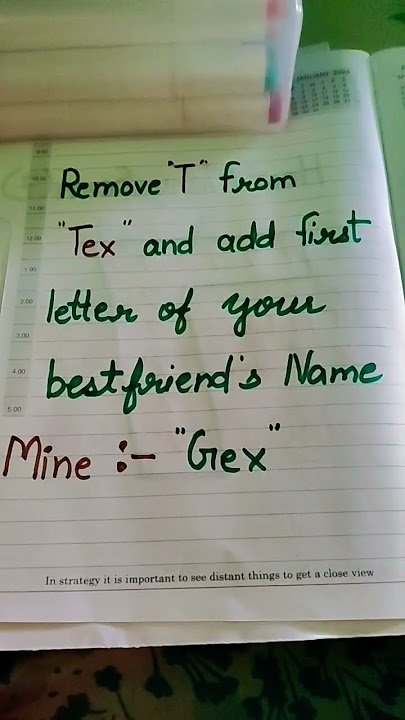 JANUARY
9.00
10.00
Remove "T" from
11.00
12.00
"Tex" and add first
1.00
2.00
letter of your
3.00
4.00
bestfriend's Name
5.00
Mine :- "Gex"
In strategy it is important to see distant things to get a close view